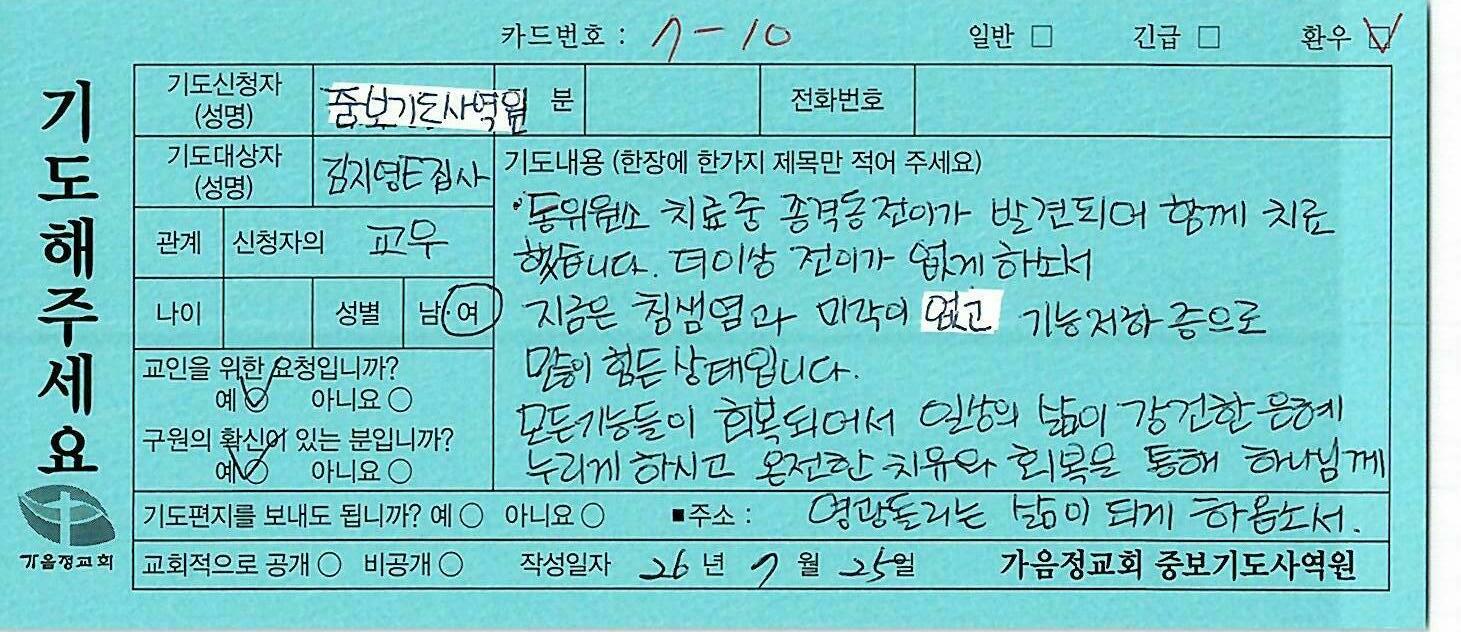 카드번호 : 7-10 일반 □ 긴급 □ 환우 ☑
기도해주세요
가음정교회
기도신청자 (성명) 중보기도사역원 분 전화번호
기도대상자 (성명) 김지영E집사
관계 신청자의 교우
나이 성별 남·여
교인을 위한 요청입니까?
예 ○ 아니요 ○
구원의 확신이 있는 분입니까?
예 ○ 아니요 ○
기도내용 (한장에 한가지 제목만 적어 주세요)
·동위원소 치료중 종격동전이가 발견되어 함께 치료
했습니다. 더이상 전이가 없게 하소서
지금은 침샘염과 미각이 없고 기능저하 증으로
말이 힘든상태입니다.
모든기능들이 회복되어서 일상의 삶이 강건한 은혜
누리게 하시고 온전한 치유와 회복을 통해 하나님께
영광돌리는 삶이 되게 하옵소서.
기도편지를 보내도 됩니까? 예 ○ 아니요 ○ ■주소 :
교회적으로 공개 ○ 비공개 ○ 작성일자 26 년 7 월 25일 가음정교회 중보기도사역원